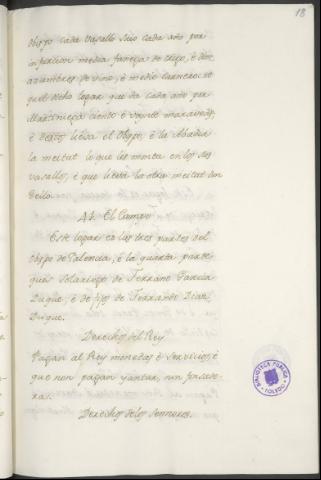 18
obispo cada vasallo suio cada año por
infurcion media fanega de trigo, è dos
azumbres de vino, è medio carnero: et
quel dicho logar que da cada año por
Martiniega ciento è veynte maravedis,
è destos lieva el Obispo, è la abadia
la meitat lo que les monta en los sus
vasallos, è que lieva la otra meitat don
Tello.
A4. El Campo
Este logar es las tres partes del
obispo de Palencia, è la quarta parte
que es solariego de Ferrand Garcia
Duque, è de fijos de Ferrande Diaz
Duque.
Derechos del Rey
Pagan al Rey monedas è servicios, è
que non pagan yantar, nin fonsade-
ras.
Derechos de los sennores.
BIBLIOTECA PUBLICA
TOLEDO